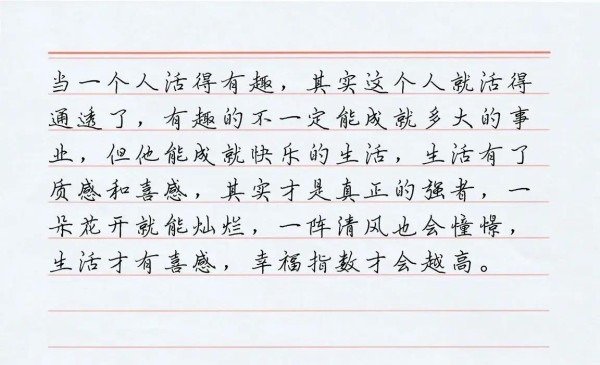 当一个人活得有趣，其实这个人就活得
通透了，有趣的不一定能成就多大的事
业，但他能成就快乐的生活，生活有了
质感和喜感，其实才是真正的强者，一
朵花开就能灿烂，一阵清风也会憧憬，
生活才有喜感，幸福指数才会越高。